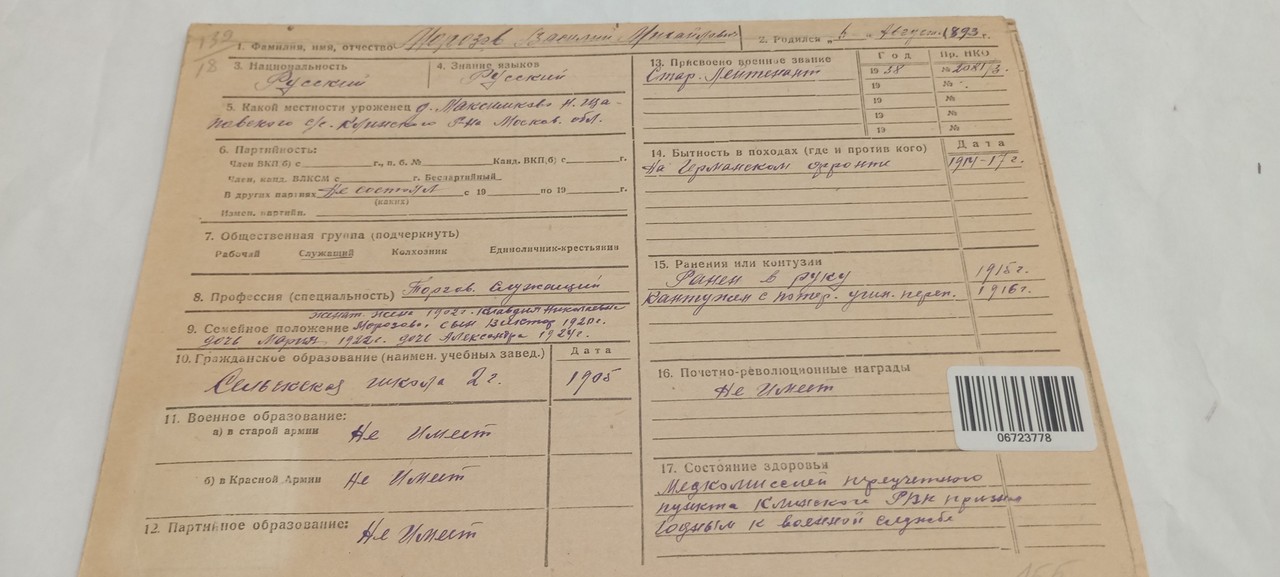 139
18
1. Фамилия, имя, отчество Морозов Василий Михайлович
2. Родился " " Август 1893
3. Национальность
Русский
4. Знание языков
Русский
5. Какой местности уроженец д. Максимково
с/с. Клинского р-на Москов. обл.
6. Партийность:
Член ВКП б) с г., п. б. № Канд. ВКП(б) с г.
Член, канд. ВЛКСМ с г. Беспартийный
В других партиях Не состоял с 19 по 19 г.
(каких)
Измен. партийн.
7. Общественная группа (подчеркнуть)
Рабочий Служащий Колхозник Единоличник-крестьянин
8. Профессия (специальность) Торгов. Служащий
женат. жена 1902г. Клавдия Николаевна
9. Семейное положение Морозова, сын Виктор 1920г.
дочь Мария 1922г. дочь Александра 1924г.
10. Гражданское образование (наимен. учебных завед.) Дата
Сельская школа 2 г. 1905
11. Военное образование:
а) в старой армии Не Имеет
б) в Красной Армии Не Имеет
12. Партийное образование:
Не Имеет
13. Присвоено военное звание Год Пр. НКО
Стар. Лейтенант 1938 №
19 №
19 №
19 №
19 №
14. Бытность в походах (где и против кого) Дата
На Германском фронте 1914-17 г.
15. Ранения или контузии
Ранен в руку 1915 г.
Кантужен с потер. 1916 г.
16. Почетно-революционные награды
Не Имеет
06723778
17. Состояние здоровья
Медкомиссией переучетного
пункта Клинского РВК признан
годным к военной службе
155